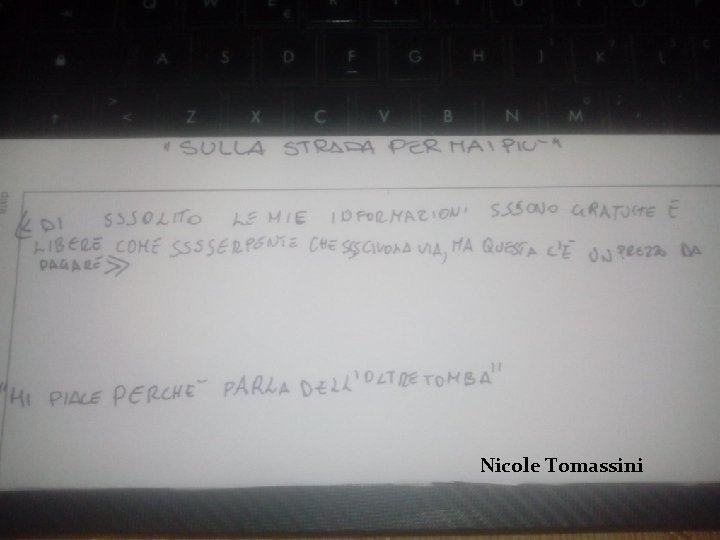 " SULLA STRADA PER MAI PIU' "
<< DI SSSOLITO LE MIE INFORMAZIONI SSSONO GRATUITE E
LIBERE COME SSSSERPENTE CHE SSSCIVOLA VIA, MA QUESTA C'È UN PREZZO DA
PAGARE >>
"MI PIACE PERCHE' PARLA DELL'OLTRETOMBA"
Nicole Tomassini